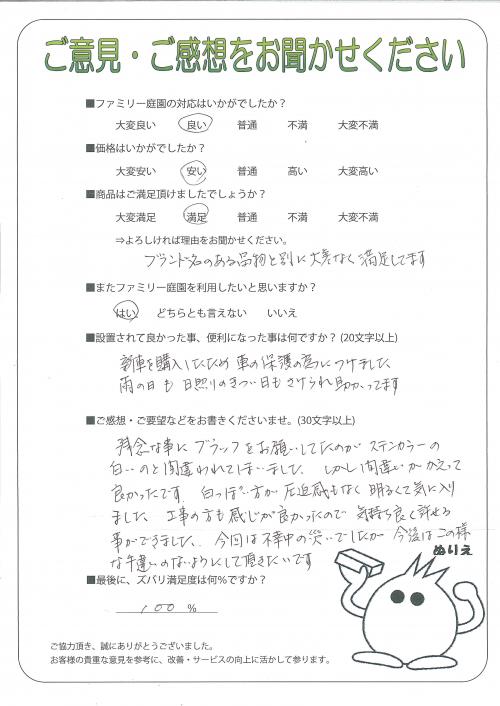 ご意見・ご感想をお聞かせください
■ファミリー庭園の対応はいかがでしたか？
大変良い 良い 普通 不満 大変不満
■価格はいかがでしたか？
大変安い 安い 普通 高い 大変高い
■商品はご満足頂けましたでしょうか？
大変満足 満足 普通 不満 大変不満
⇒よろしければ理由をお聞かせください。
ブランド名のある品物と別に大差なく満足してます
■またファミリー庭園を利用したいと思いますか？
はい どちらとも言えない いいえ
■設置されて良かった事、便利になった事は何ですか？(20文字以上)
新車を購入したため 車の保護の為につけました
雨の日も 日照りのきつい日もさけられ助かってます
■ご感想・ご要望などをお書きくださいませ。(30文字以上)
残念な事に ブラックをお願いしてたのが ステンカラーの
白いのと間違われてしまいました しかし間違いがかえって
良かったです 白っぽい方が 圧迫感もなく 明るくて気に入り
ました 工事の方も感じが良かったので 気持ち良く許せる
事ができました、今回は不幸中の災いでしたが 今後はこの様
な手違いのないようにして頂きたいです
ぬりえ
■最後に、ズバリ満足度は何％ですか？
100 ％
ご協力頂き、誠にありがとうございました。
お客様の貴重な意見を参考に、改善・サービスの向上に活かして参ります。